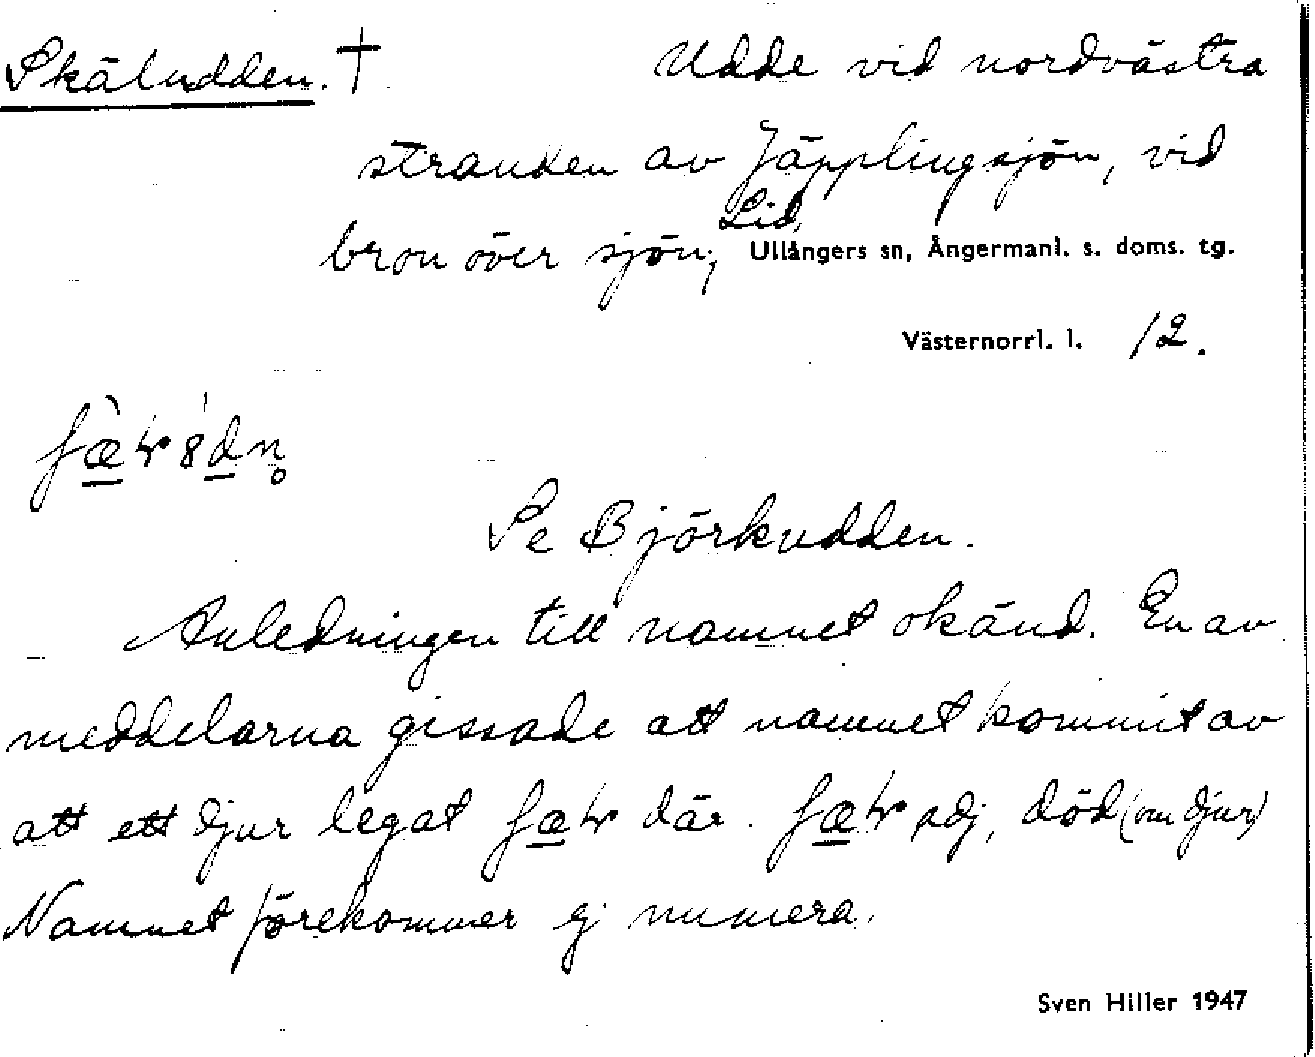 Skäludden. † Udde vid nordvästra
stranden av Jäpplingsjön, vid
bron över sjön; Lid,
Ullångers sn, Ångermanl. s. doms. tg.
Västernorrl. l. 12.
Se Björkudden.
Anledningen till namnet okänd. En av
meddelarna gissade att namnet kommit av
att ett djur legat där. adj, död (om djur)
Namnet förekommer ej numera.
Sven Hiller 1947